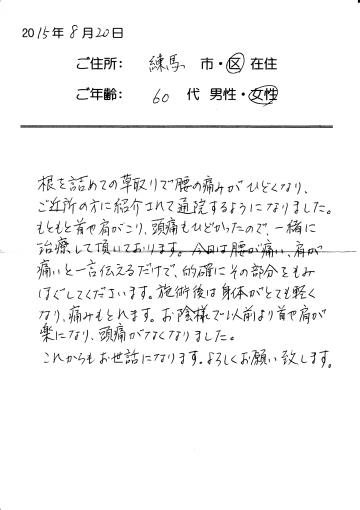 2015年8月20日
ご住所： 練馬 市・区 在住
ご年齢： 60 代 男性・女性
根を詰めての草取りで腰の痛みがひどくなり、
ご近所の方に紹介されて通院するようになりました。
もともと首や肩がこり、頭痛もひどかったので、一緒に
治療して頂いております。今日は腰が痛い、肩が
痛いと一言伝えるだけで、的確にその部分をもみ
ほぐしてくださいます。施術後は身体がとても軽く
なり、痛みもとれます。お陰様で以前より首や肩が
楽になり、頭痛がなくなりました。
これからもお世話になります。よろしくお願い致します。